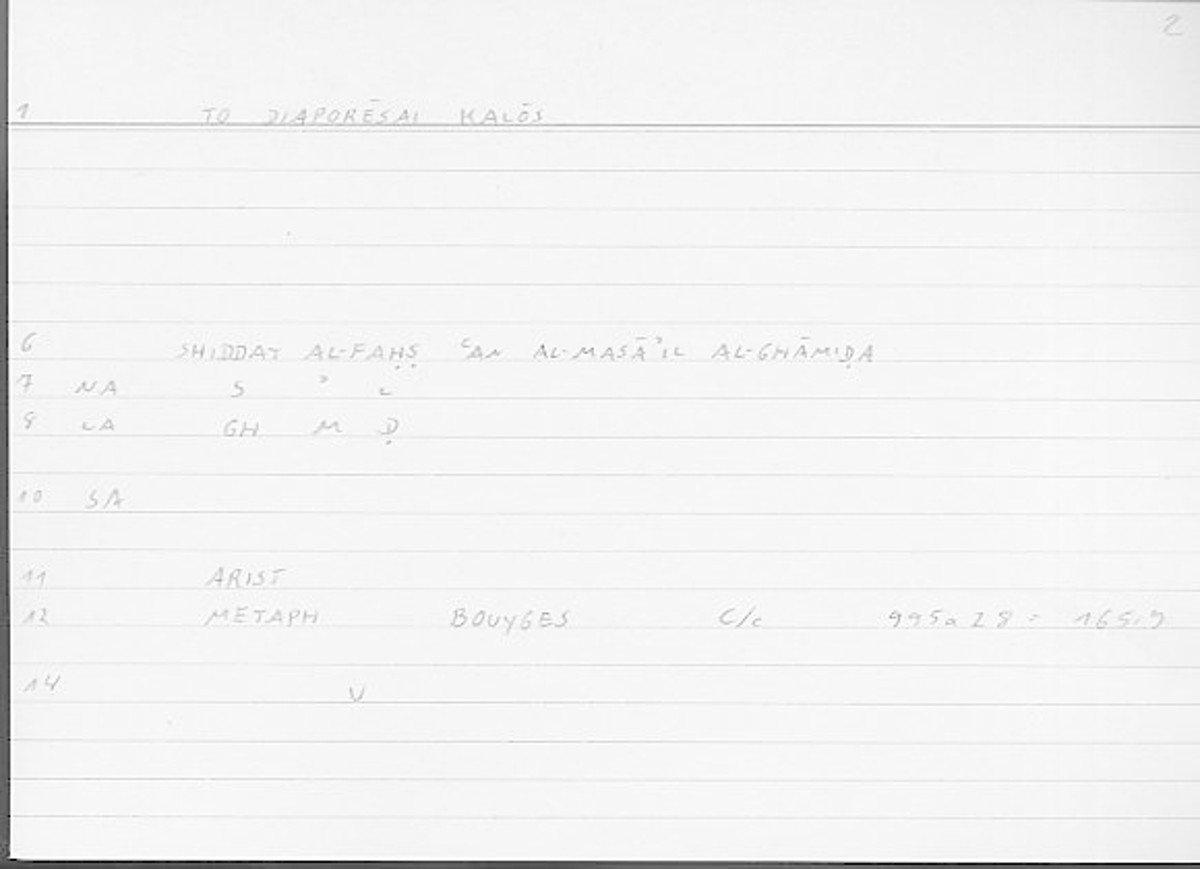 2
1 TO DIAPORĒSAI KALŌS
6 SHIDDAT AL-FAḤṢ ʿAN AL-MASĀʾIL AL-GHĀMIḌA
7 NA S ʾ L
8 LA GH M Ḍ
10 SA
11 ARIST
12 METAPH BOUYGES C/c 995a28 = 165,9
14 V